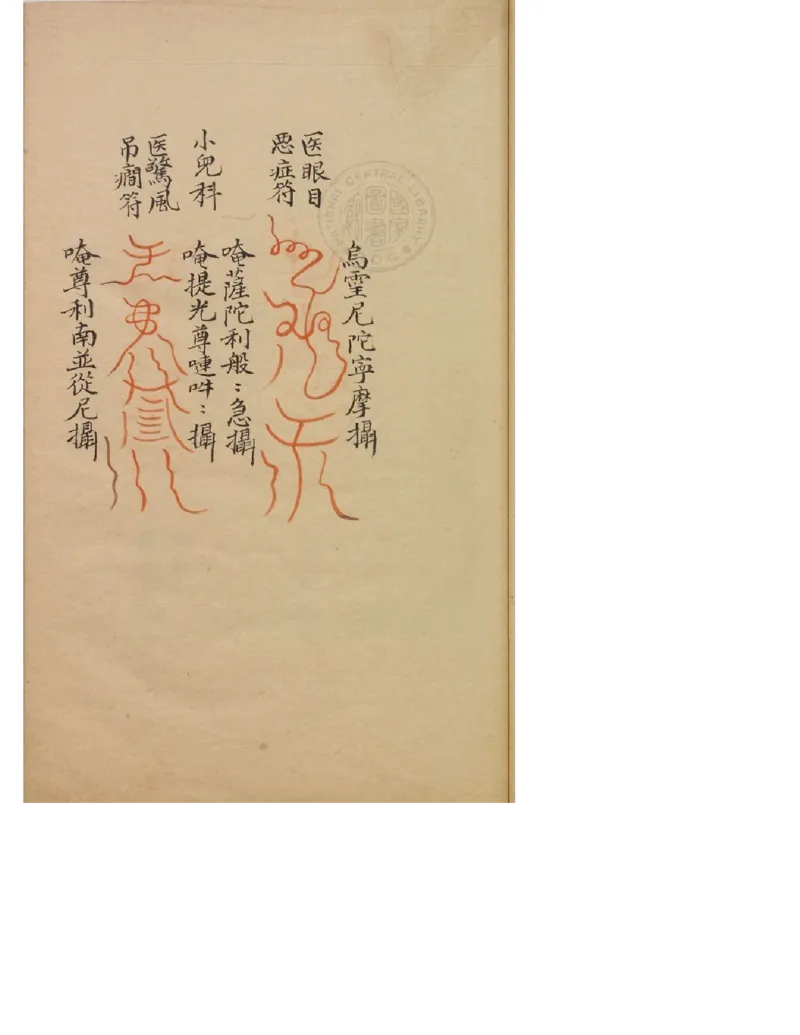 烏霊尼陀寧摩攝
医眼目
惡症符
唵薩陀利般：急攝
小兒科
唵提光尊嗹吽：攝
医驚風
吊癇符
唵尊利南並從尼攝
NATIONAL CENTRAL LIBRARY